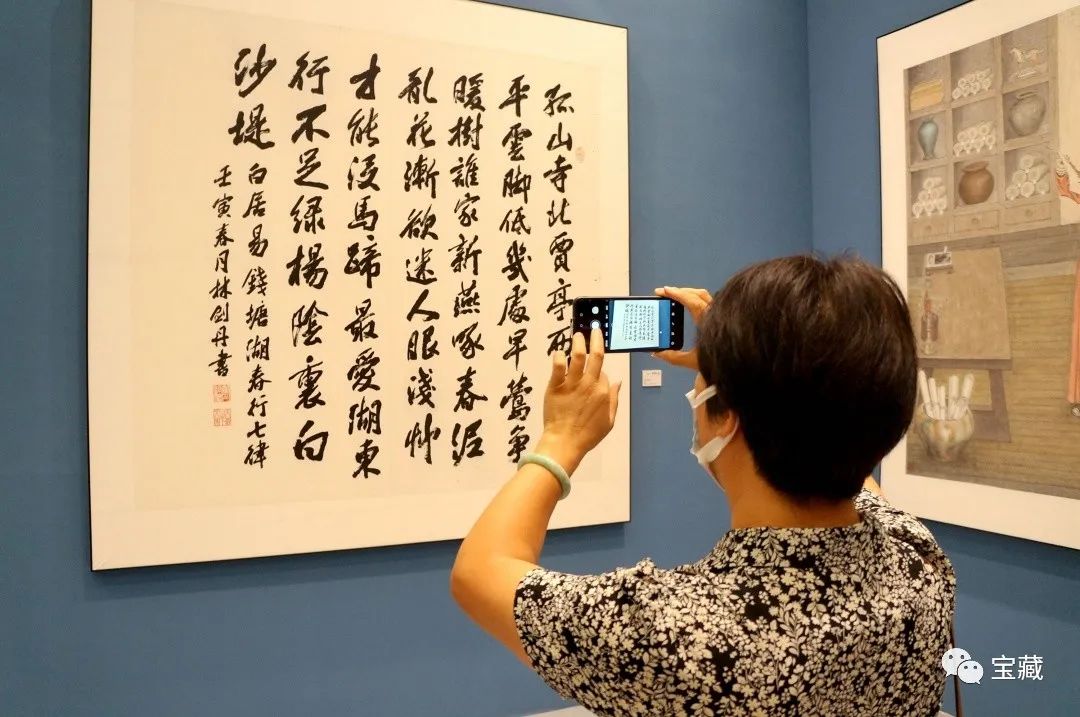 孤山寺北賈亭西
平雲脚低幾處早鶯爭
暖樹誰家新燕啄春泥
亂花漸欲迷人眼淺艸
才能没馬蹄最愛湖東
行不足绿楊陰裏白
沙堤
白居易錢塘湖春行七律
壬寅春月林剑丹書
宝藏